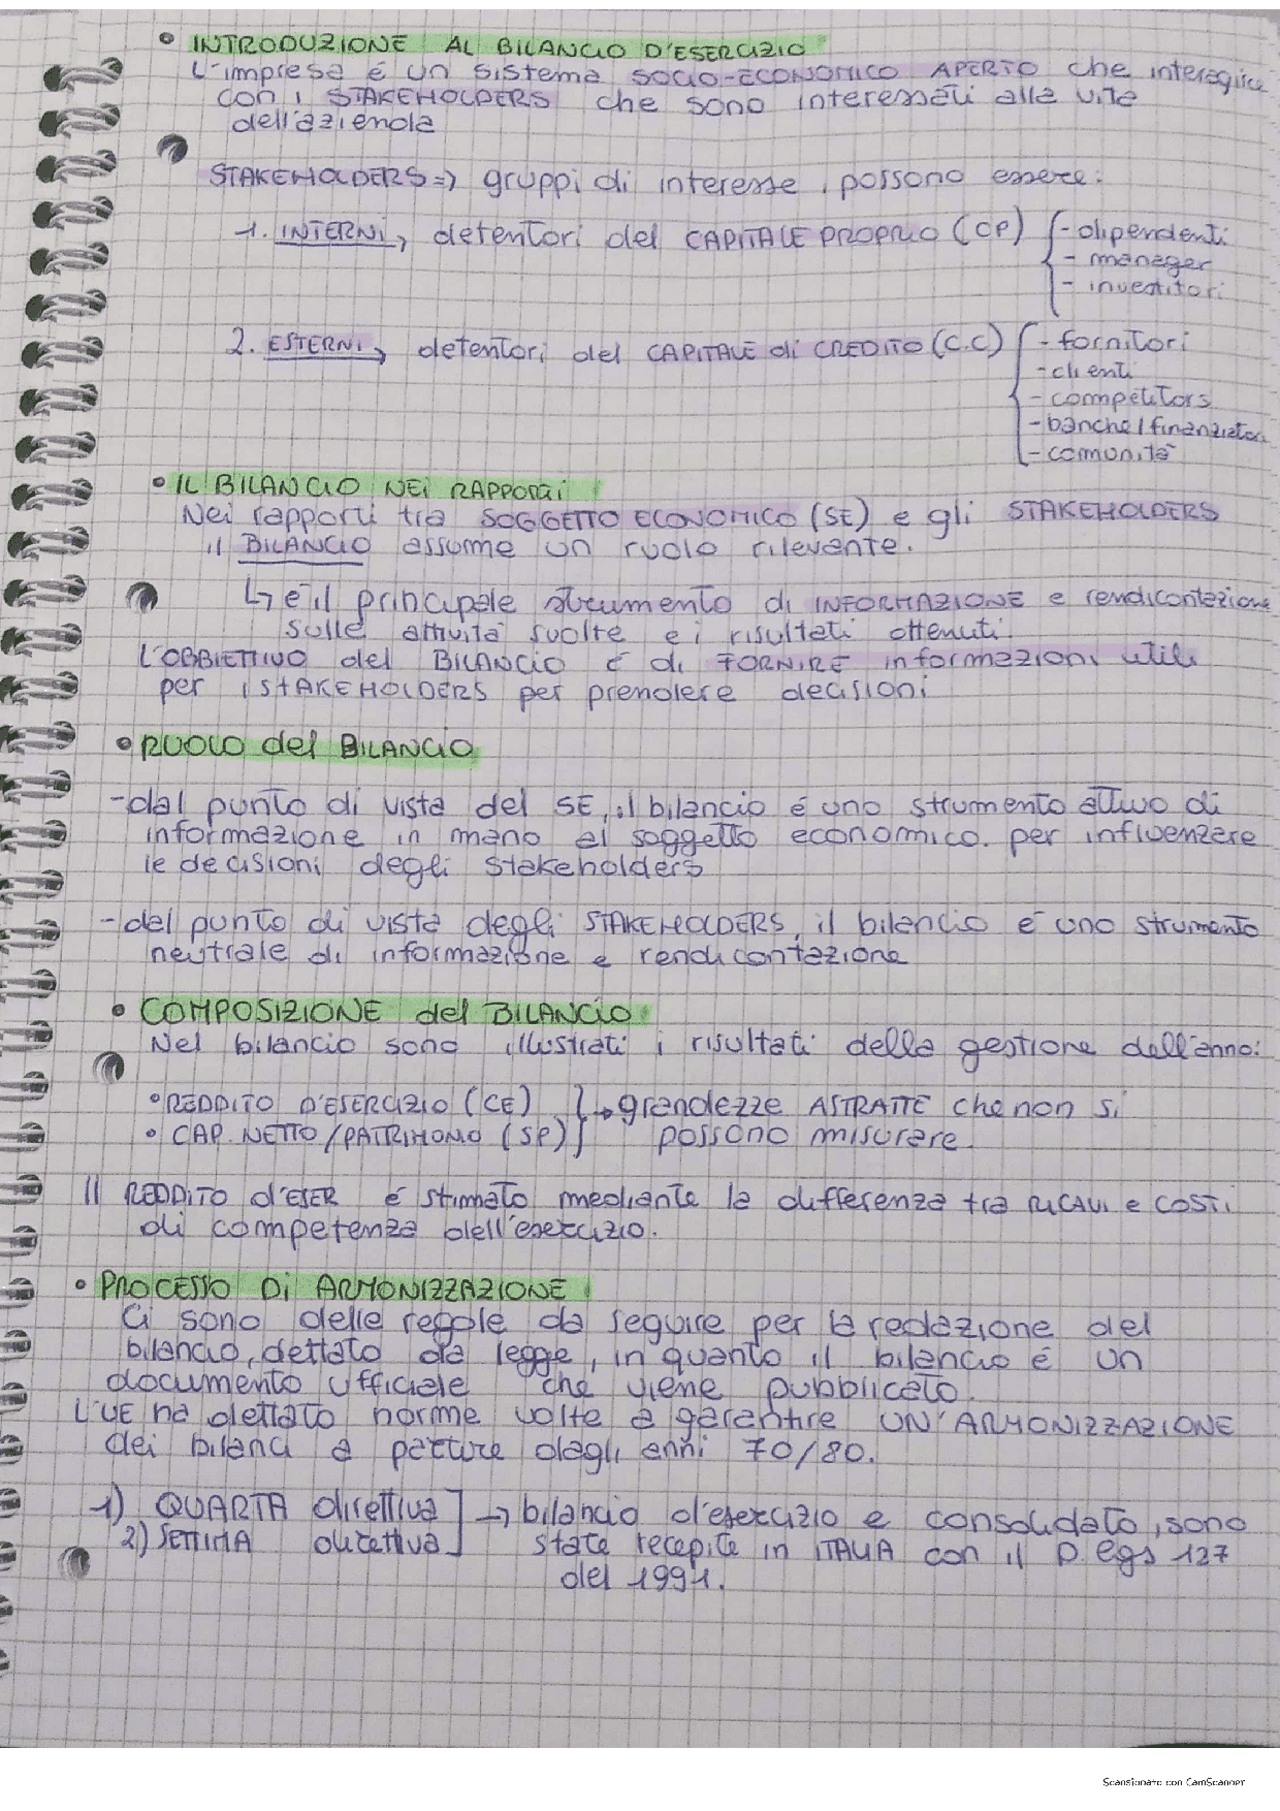 • INTRODUZIONE AL BILANCIO D'ESERCIZIO
L'impresa é un sistema SOCIO-ECONOMICO APERTO che interagisce
con i STAKEHOLDERS che sono interessati alla vita
dell'azienda
STAKEHOLDERS => gruppi di interesse, possono essere:
1. INTERNI, detentori del CAPITALE PROPRIO (CP) { - dipendenti
- manager
- investitori
2. ESTERNI, detentori del CAPITALE di CREDITO (C.C) { - fornitori
- clienti
- competitors
- banche/finanziatori
- comunità
• IL BILANCIO NEI RAPPORTI
Nei rapporti tra SOGGETTO ECONOMICO (SE) e gli STAKEHOLDERS
il BILANCIO assume un ruolo rilevante.
↳ è il principale strumento di INFORMAZIONE e rendicontazione
sulle attività svolte e i risultati ottenuti.
L'OBBIETTIVO del BILANCIO é di FORNIRE informazioni utili
per i STAKEHOLDERS per prendere decisioni
• RUOLO del BILANCIO
- dal punto di vista del SE, il bilancio é uno strumento attivo di
informazione in mano al soggetto economico. per influenzare
le decisioni degli stakeholders
- dal punto di vista degli STAKEHOLDERS, il bilancio é uno strumento
neutrale di informazione e rendicontazione
• COMPOSIZIONE del BILANCIO
Nel bilancio sono illustrati i risultati della gestione dell'anno:
• REDDITO D'ESERCIZIO (CE) } → grandezze ASTRATTE che non si
• CAP. NETTO/PATRIMONIO (SP) } possono misurare.
Il REDDITO d'ESER é stimato mediante la differenza tra RICAVI e COSTI
di competenza dell'esercizio.
• PROCESSO Di ARMONIZZAZIONE
Ci sono delle regole da seguire per la redazione del
bilancio, dettato da legge, in quanto il bilancio é un
documento ufficiale che viene pubblicato.
L'UE ha dettato norme volte a garantire UN'ARMONIZZAZIONE
dei bilanci a partire dagli anni 70/80.
1) QUARTA direttiva ] → bilancio d'esercizio e consolidato, sono
2) SETTIMA direttiva ] state recepite in ITALIA con il D.egs 127
del 1991.
Scansionato con CamScanner